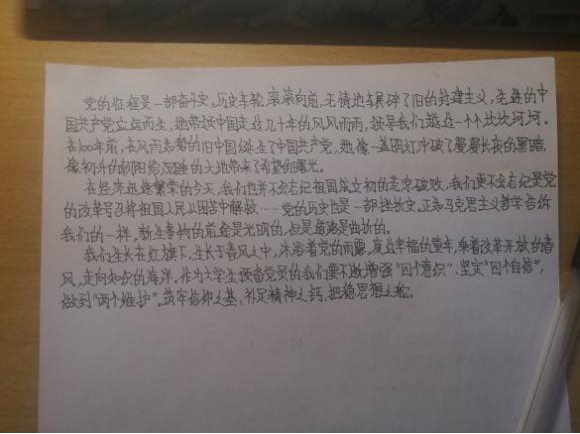 党的征程是一部奋斗史,历史车轮滚滚向前,无情地车展碎了旧的封建主义,先进的中
国共产党应运而生,她带领中国走过几十年的风风雨雨,领导我们越过一个个坎坎坷坷。
在100年前,在风雨飘摇的旧中国诞生了中国共产党,她像一盏明灯冲破了漫漫长夜的黑暗,
像初升的朝阳给沉睡的大地带来了希望的曙光。
在经济迅速繁荣的今天,我们也并不会忘记祖国成立初的荒凉破败,我们更不会忘记是党
的改革号召将祖国人民从困苦中解放……党的历史也是一部挫折史。正如马克思主义哲学告诉
我们的一样,新生事物的前途是光明的,但是道路是曲折的。
我们生长在红旗下,生长于春风之中,沐浴着党的雨露,度过幸福的童年,乘着改革开放的春
风,走向知识的海洋。作为大学生预备党员的我们要不断增强"四个意识"、坚定"四个自信",
做到"两个维护",筑牢信仰之基,补足精神之钙,把稳思想之舵。